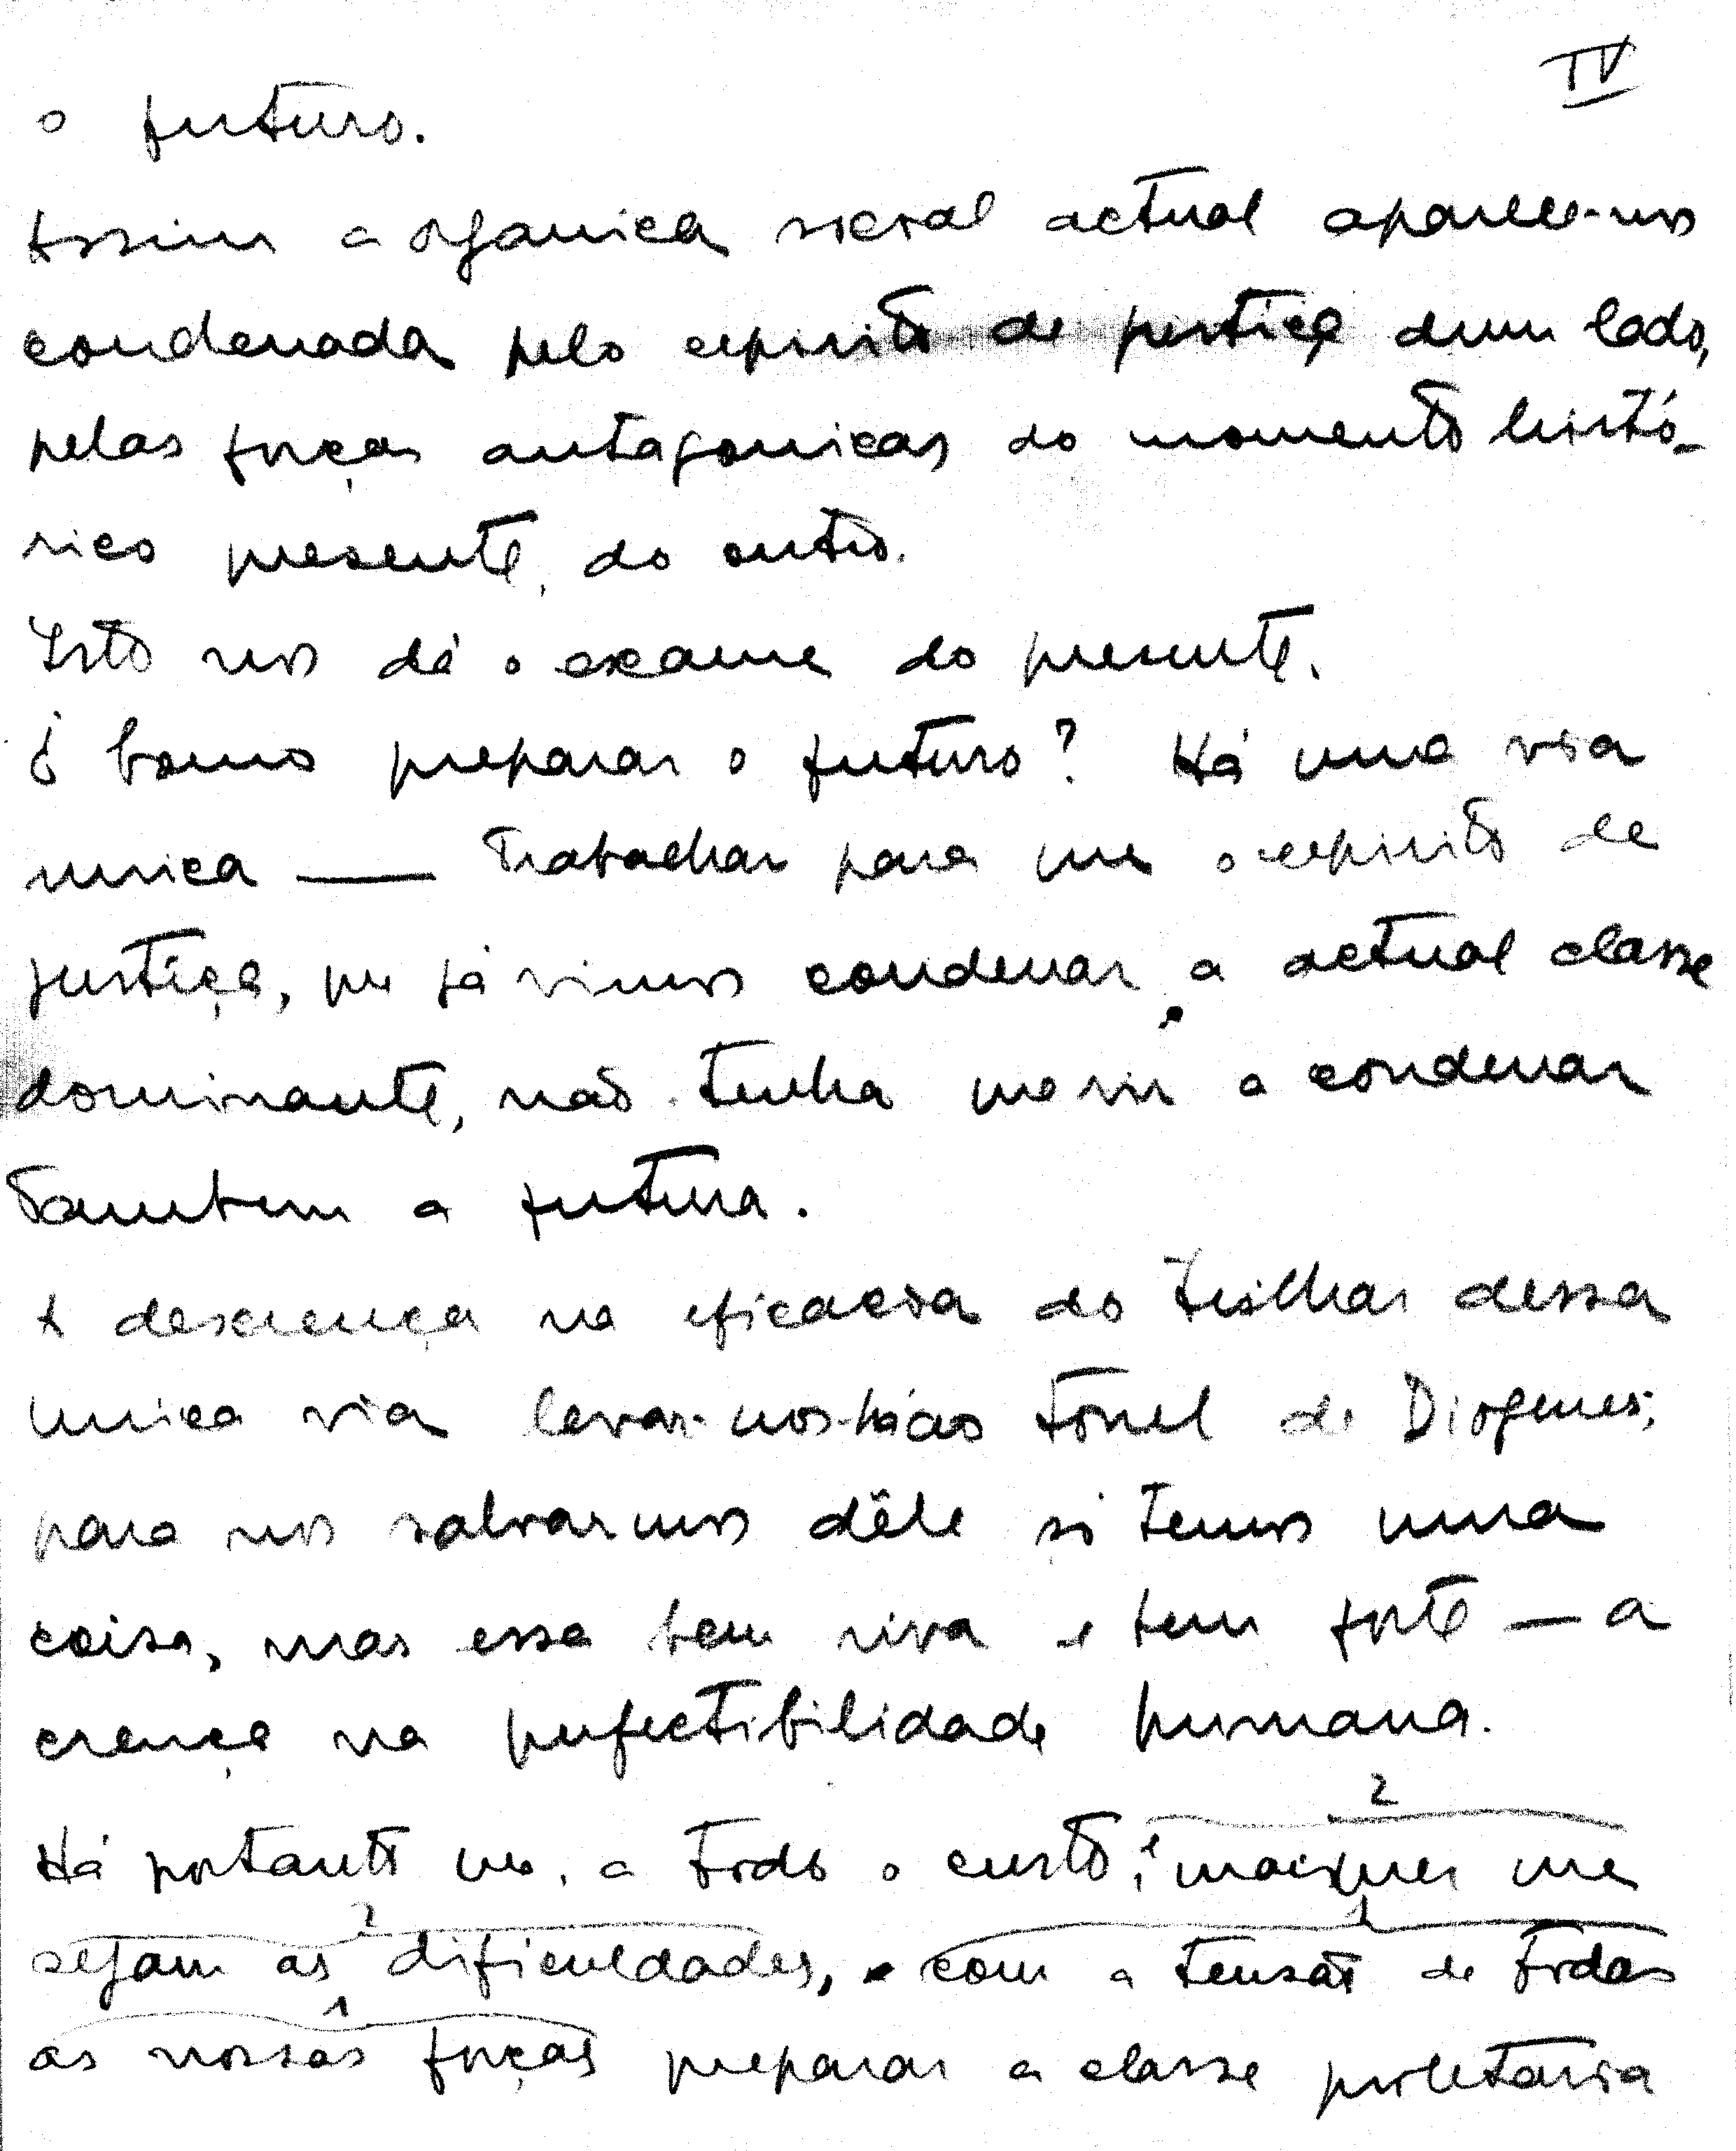 IV
o futuro.
Assim a organica social actual aparece-nos
condenada pelo espirito de justiça dum lado,
pelas forças antagonicas do momento histó-
rico presente, do outro.
Isto nos dá o exame do presente.
E como preparar o futuro? Há uma via
unica — trabalhar para que o espirito de
justiça, que já vimos condenar a actual classe
dominante, não tenha que vir a condenar
tambem a futura.
A descrença na eficacia do trilhar dessa
unica via levar-nos-há ao tonel de Diogenes;
para nos salvarmos dêle só temos uma
coisa, mas essa bem viva e bem forte — a
crença na perfectibilidade humana.
2
Há portanto que, a todo o custo, e quaisquer que
2 1
sejam as dificuldades, com a tensão de todas
1
as nossas forças preparar a classe proletaria